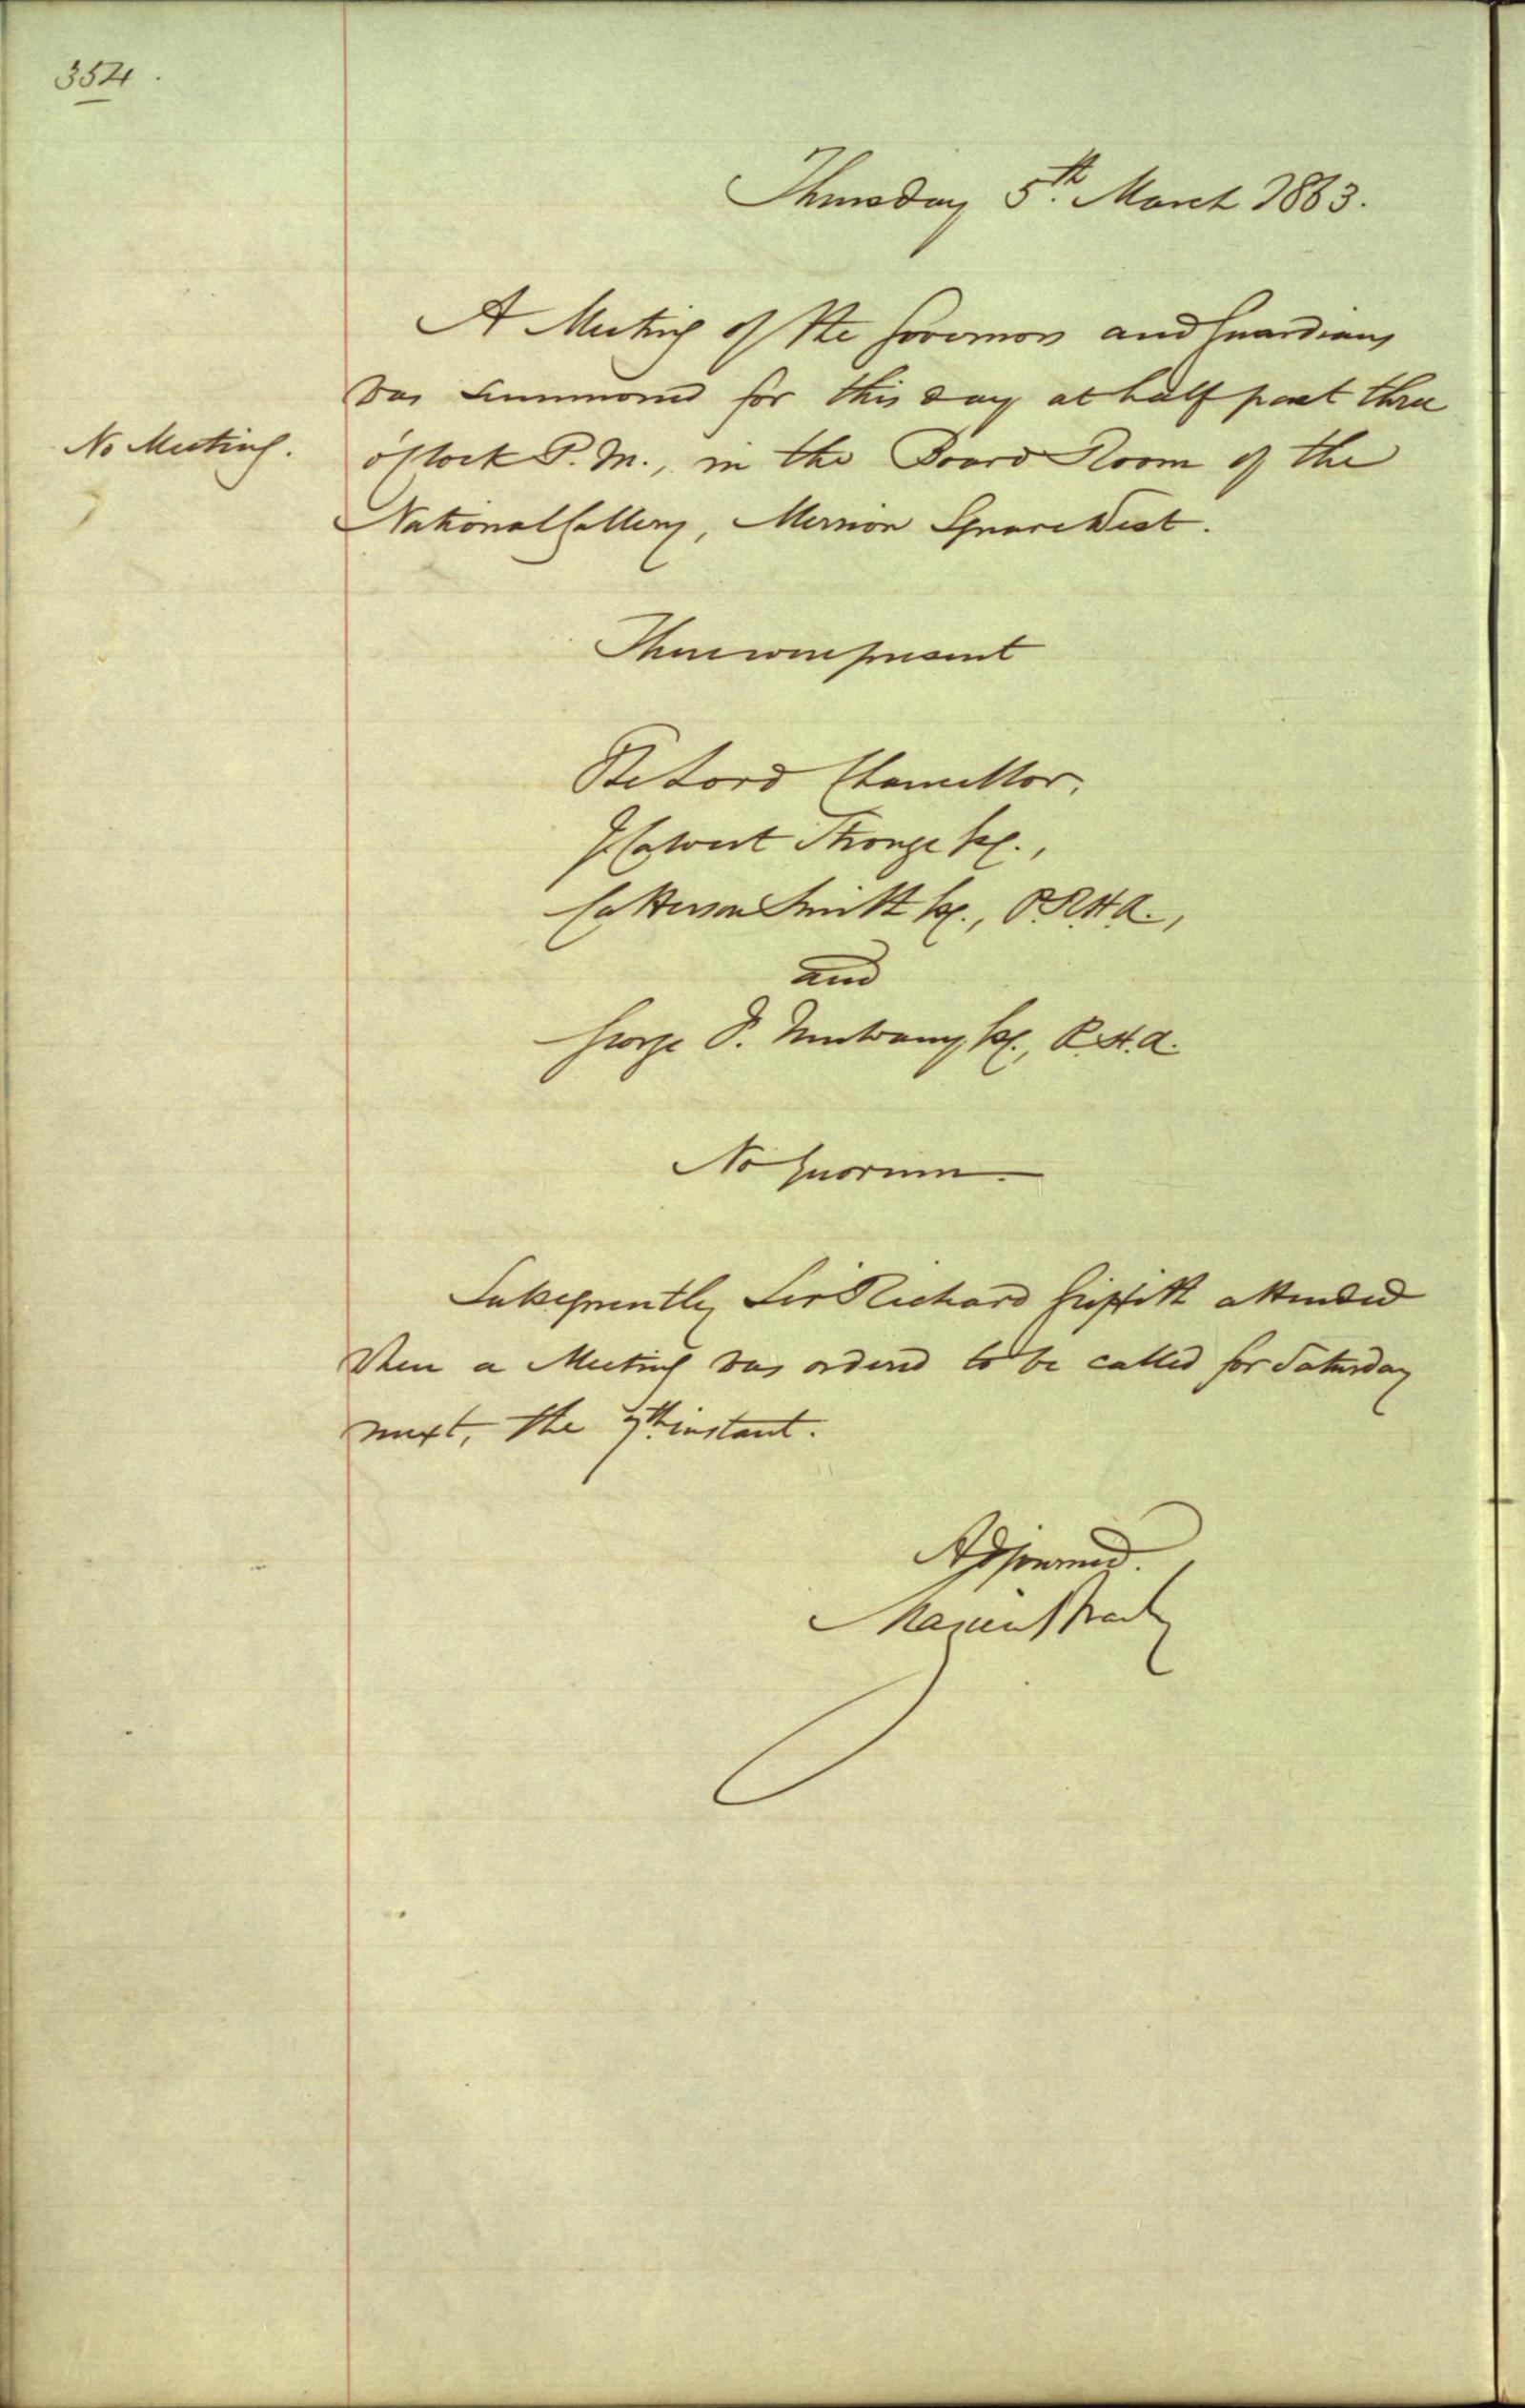 354.
Thursday 5th. March 1863.
A Meeting of the Governors and Guardians
was summoned for this day at half past three
No Meeting.
o'Clock P.M., in the Board Room of the
National Gallery, Merrion Square West.
There were present
The Lord Chancellor,
J. Calvert Stronge Esq.,
Catterson Smith Esq., P.R.H.A.,
and
George F. Mulvany Esq., R.H.A.
No Quorum.
Subsequently Sir Richard Griffith attended
when a Meeting was ordered to be called for Saturday
next, the 7th. instant.
Adjourned.
Maziere Brady